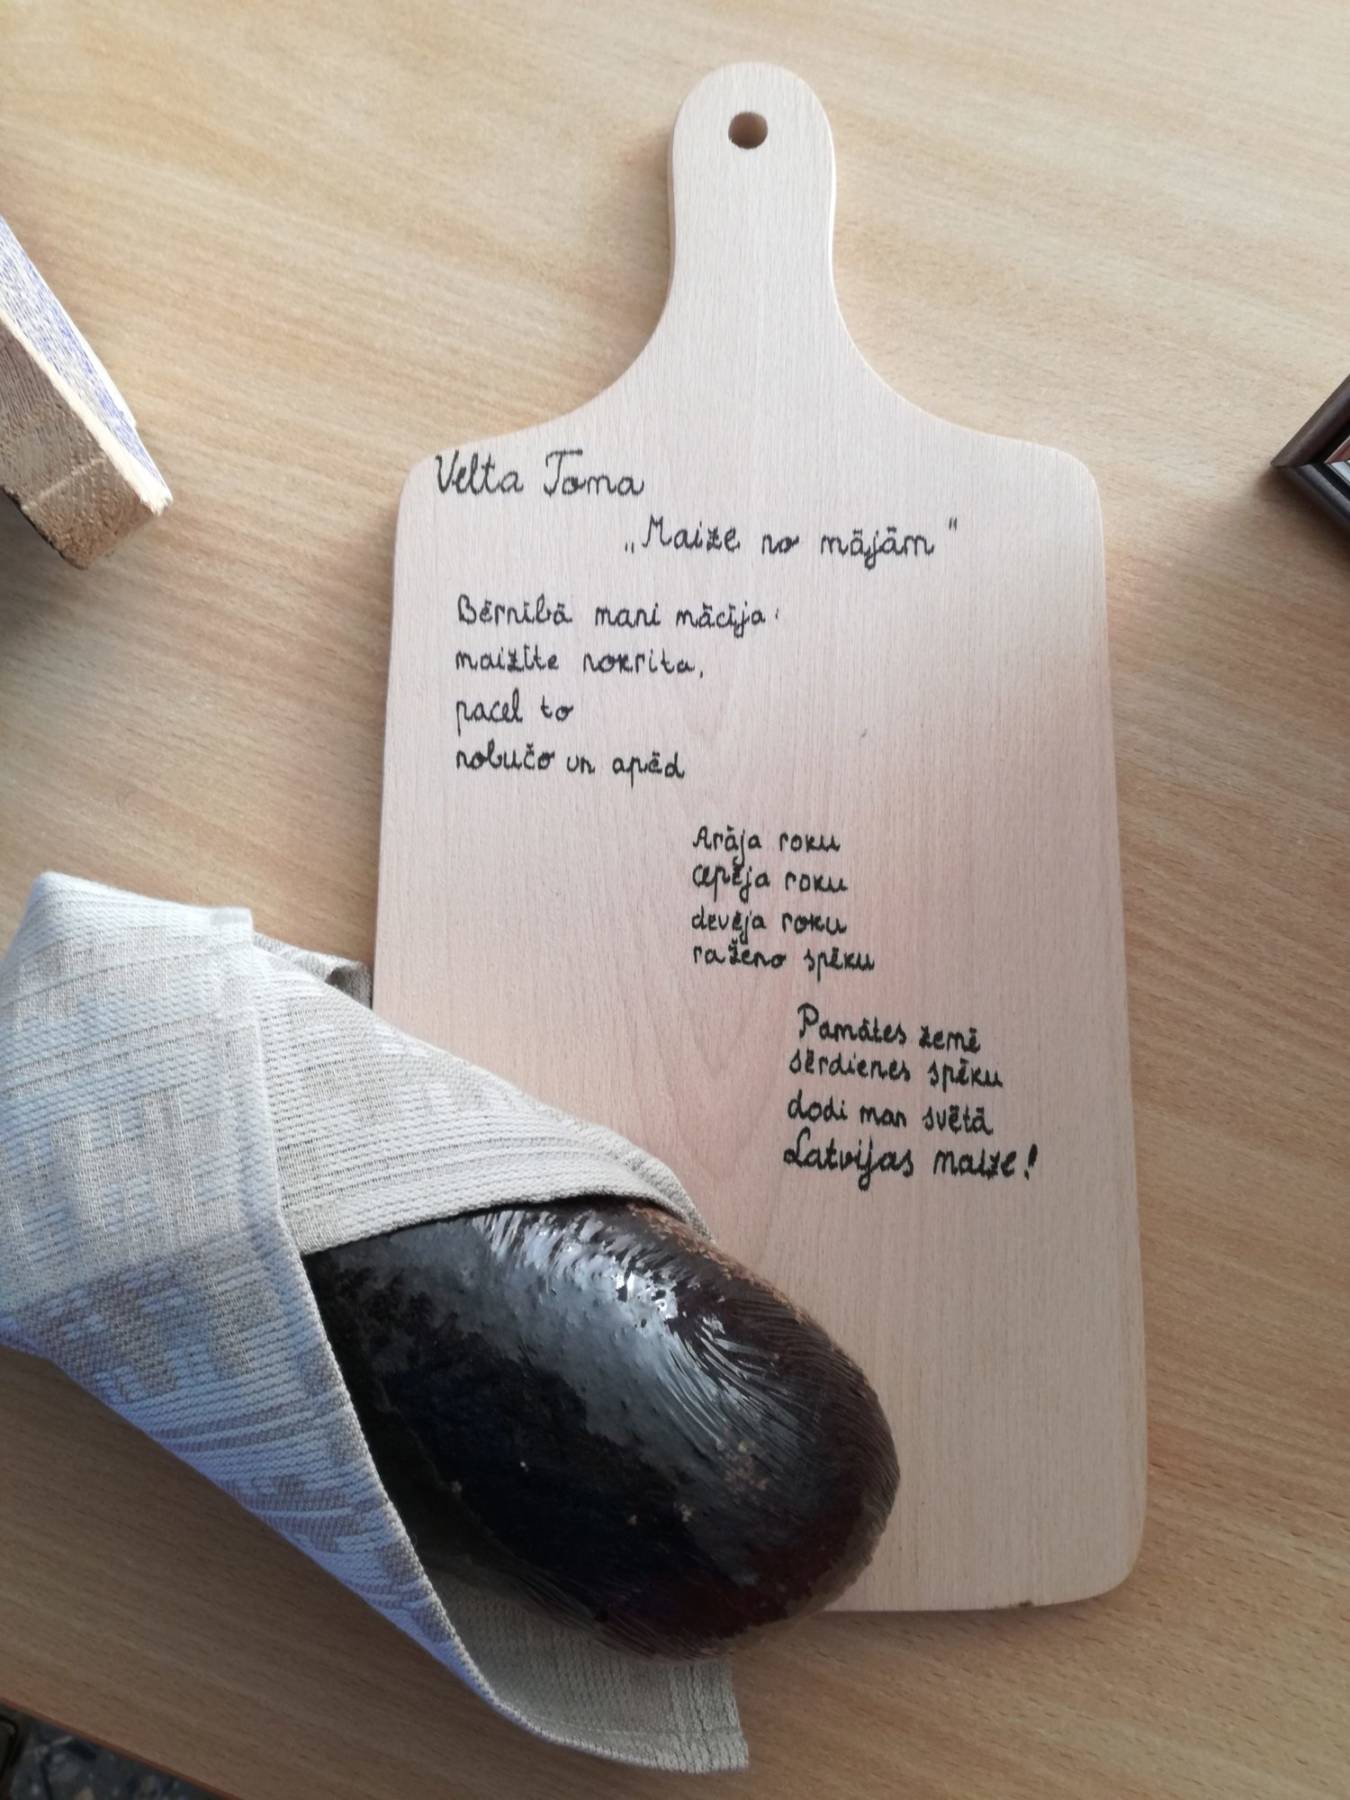 Velta Toma
„Maize no mājām"
Bērnībā mani mācīja:
maizīte nokrita,
pacel to
nobučo un apēd
Arāja roku
cepēja roku
devēja roku
raženo spēku
Pamātes zemē
sērdienes spēku
dodi man svētā
Latvijas maize!